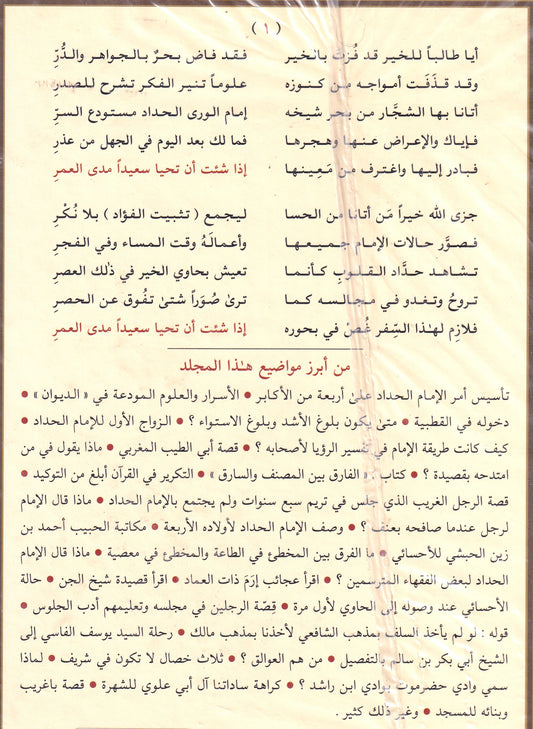 ( ١ )
أيا طالباً للخير قد فُزتَ بالخير فقد فاض بحرٌ بالجواهر والدُّرِّ
وقد قذَفَت أمواجه من كنوزه علوماً تنير الفكر تشرح للصدرِ
أتانا بها الشجَّار من بحر شيخه إمام الورى الحداد مستودع السرِّ
فإياك والإعراض عنها وهجرها فما لك بعد اليوم في الجهل من عذرِ
فبادر إليها واغترف من مَعِينها إذا شئت أن تحيا سعيداً مدى العمرِ
جزى الله خيراً مَن أتانا من الحسا ليجمع ( تثبيت الفؤاد ) بلا نُكْرِ
فصوَّر حالات الإمام جميعها وأعمالَهُ وقت المساء وفي الفجرِ
تشاهد حدَّاد القلوبِ كأنما تعيش بحاوي الخير في ذلك العصرِ
تروحُ وتغدو في مجالسه كما ترىٰ صُوَراً شتىٰ تفُوق عن الحصرِ
فلازِم لهذا السِّفر غُصْ في بحوره إذا شئت أن تحيا سعيداً مدى العمرِ
من أبرز مواضيع هٰذا المجلد
تأسيس أمر الإمام الحداد علىٰ أربعة من الأكابر • الأسرار والعلوم المودعة في « الديوان » •
دخوله في القطبية • متىٰ يكون بلوغ الأشد وبلوغ الاستواء ؟ • الزواج الأول للإمام الحداد •
كيف كانت طريقة الإمام في تفسير الرؤيا لأصحابه ؟ • قصة أبي الطيب المغربي • ماذا يقول في من
امتدحه بقصيدة ؟ • كتاب : « الفارق بين المصنف والسارق » • التكرير في القرآن أبلغ من التوكيد •
قصة الرجل الغريب الذي جلس في تريم سبع سنوات ولم يجتمع بالإمام الحداد • ماذا قال الإمام
لرجل عندما صافحه بعنف ؟ • وصف الإمام الحداد لأولاده الأربعة • مكاتبة الحبيب أحمد بن
زين الحبشي للأحسائي • ما الفرق بين المخطئ في الطاعة والمخطئ في معصية • ماذا قال الإمام
الحداد لبعض الفقهاء المترسمين ؟ • اقرأ عجائب إرَمَ ذات العماد • اقرأ قصيدة شيخ الجن • حالة
الأحسائي عند وصوله إلى الحاوي لأول مرة • قِصّة الرجلين في مجلسه وتعليمهم أدب الجلوس •
قوله : لو لم يأخذ السلف بمذهب الشافعي لأخذنا بمذهب مالك • رحلة السيد يوسف الفاسي إلى
الشيخ أبي بكر بن سالم بالتفصيل • من هم العوالق ؟ • ثلاث خصال لا تكون في شريف • لماذا
سمي وادي حضرموت بوادي ابن راشد ؟ • كراهة ساداتنا آل أبي علوي للشهرة • قصة باغريب
وبنائه للمسجد • وغير ذلك كثير .